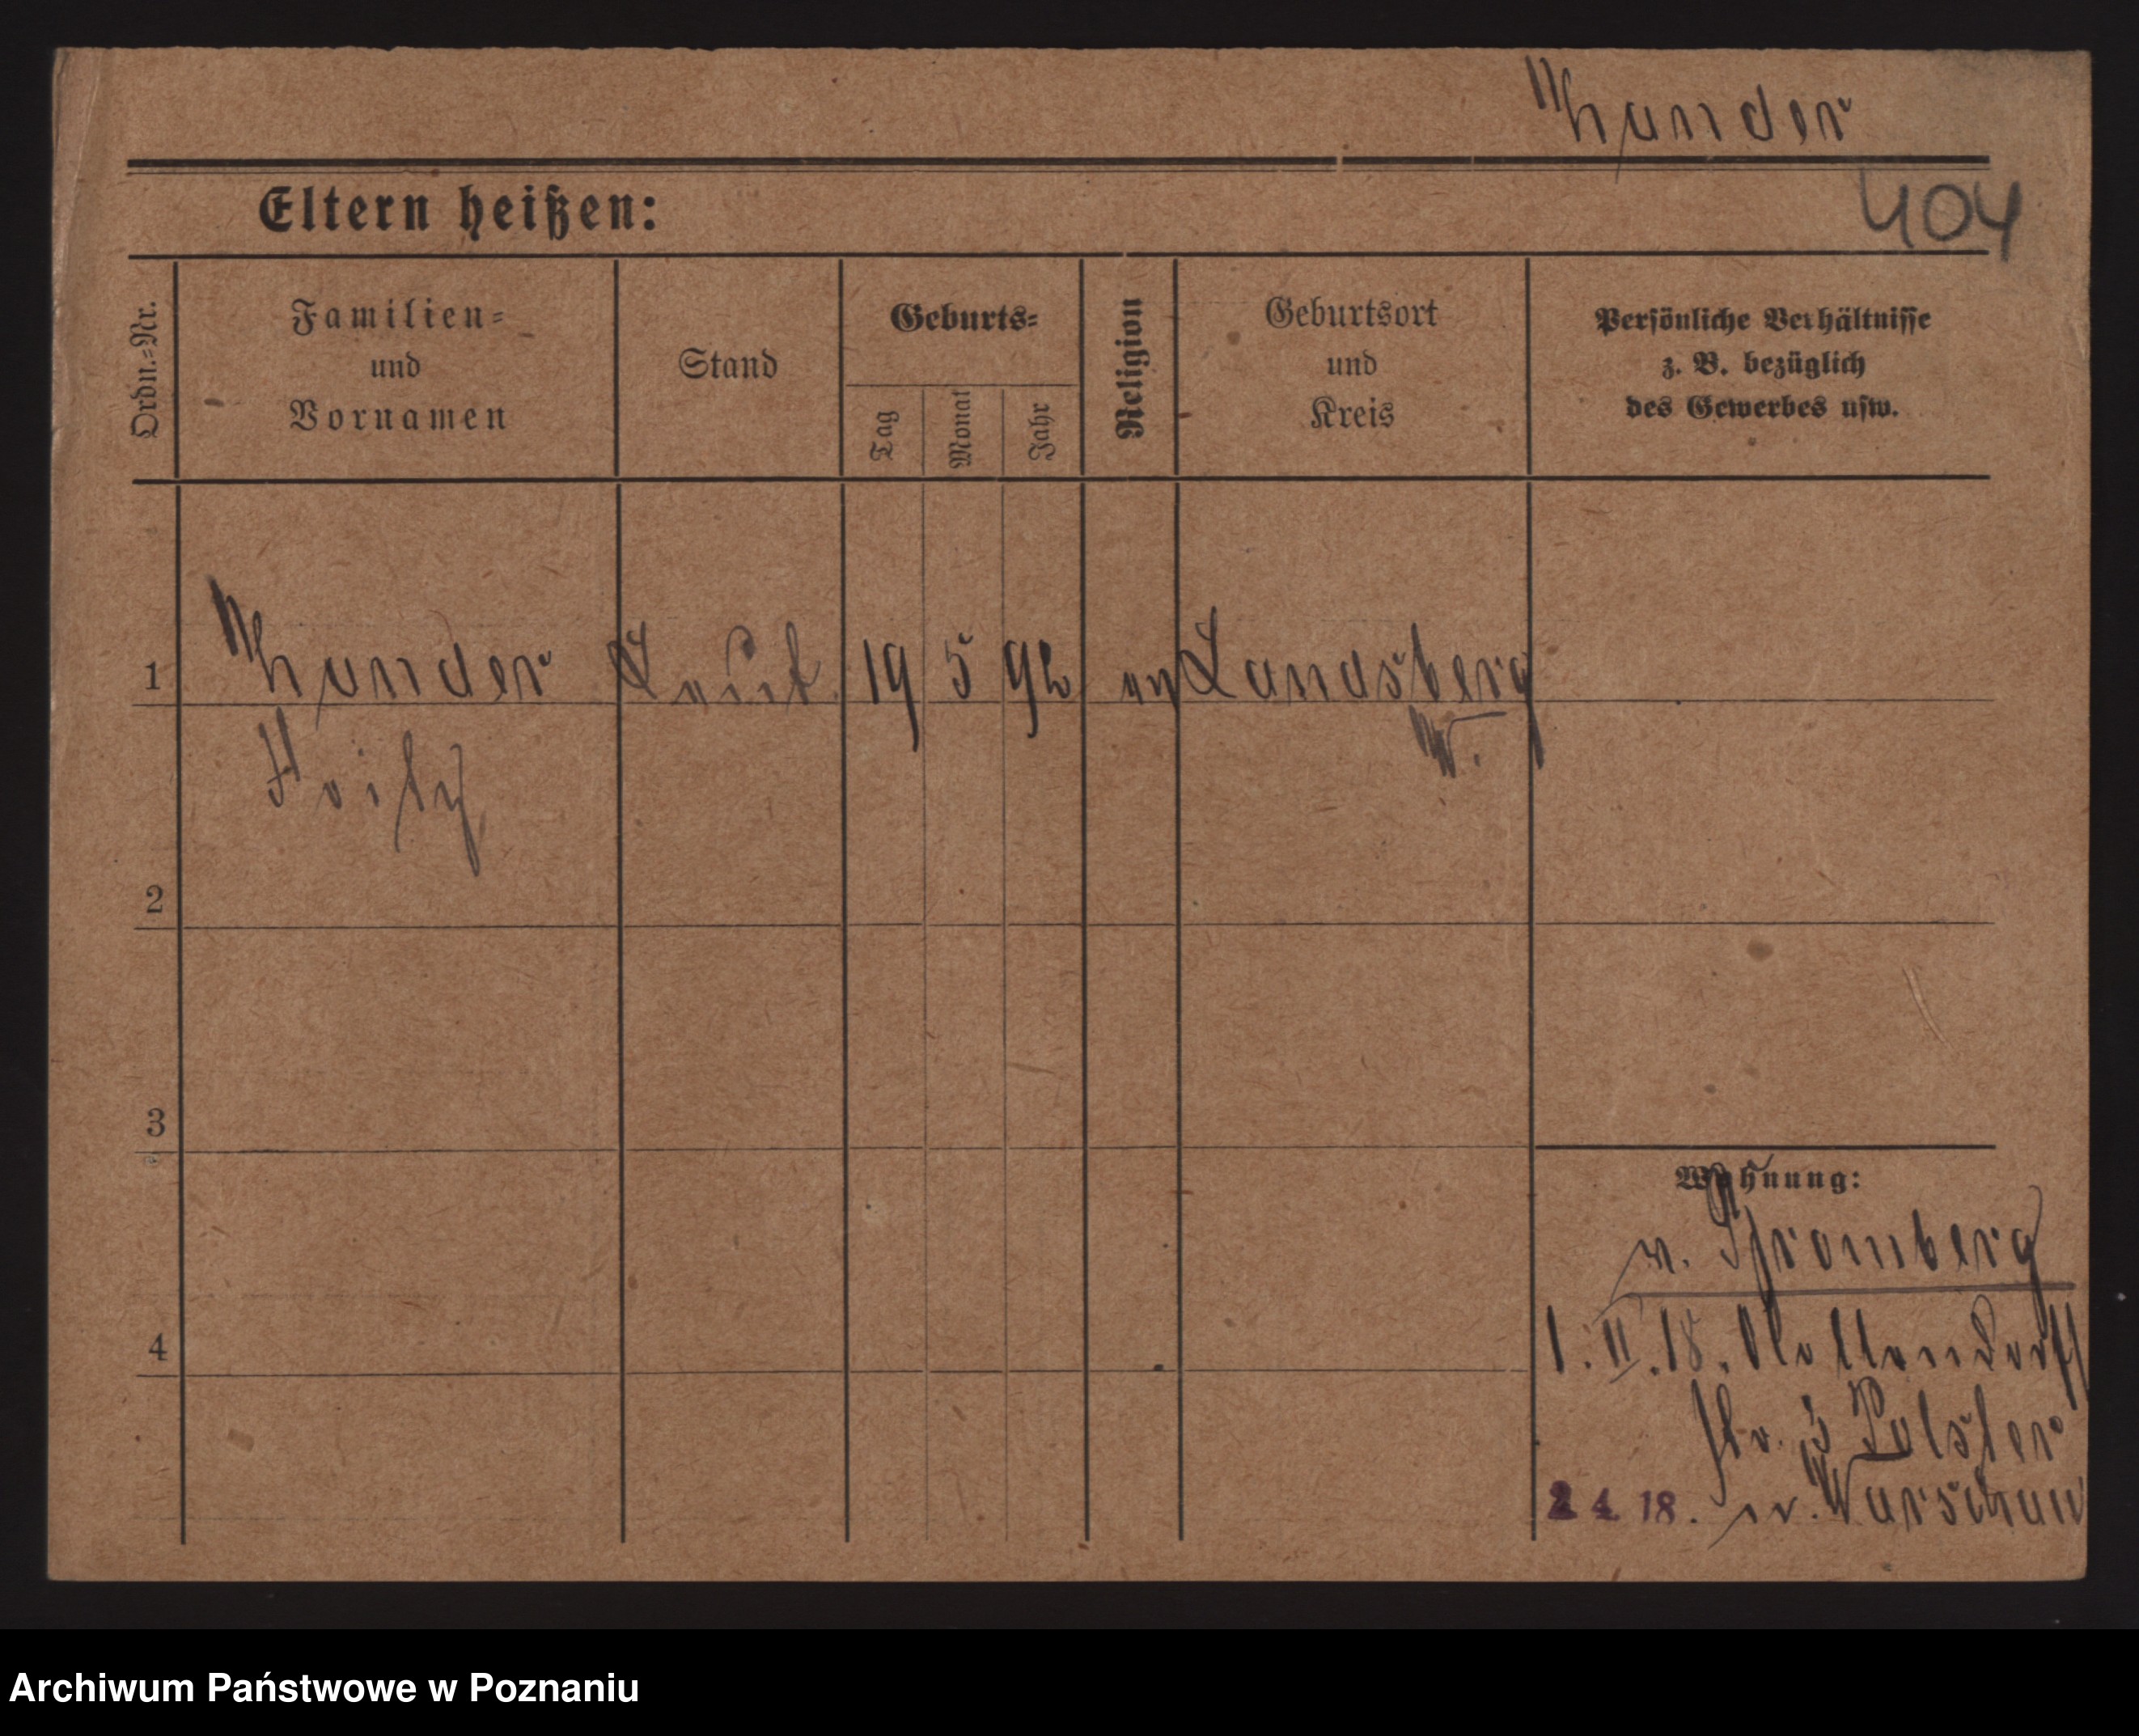 404
Eltern heißen:
Ordn.=Nr.
Familien=
und
Vornamen
Stand
Geburts=
Tag
Monat
Jahr
Religion
Geburtsort
und
Kreis
Persönliche Verhältnisse
z. B. bezüglich
des Gewerbes usw.
1
19 5 92 Landsberg
W.
2
3
4
Wohnung:
v. Bromberg
1. II. 18.
Polster
2 4 18. n. Warschau
Archiwum Państwowe w Poznaniu